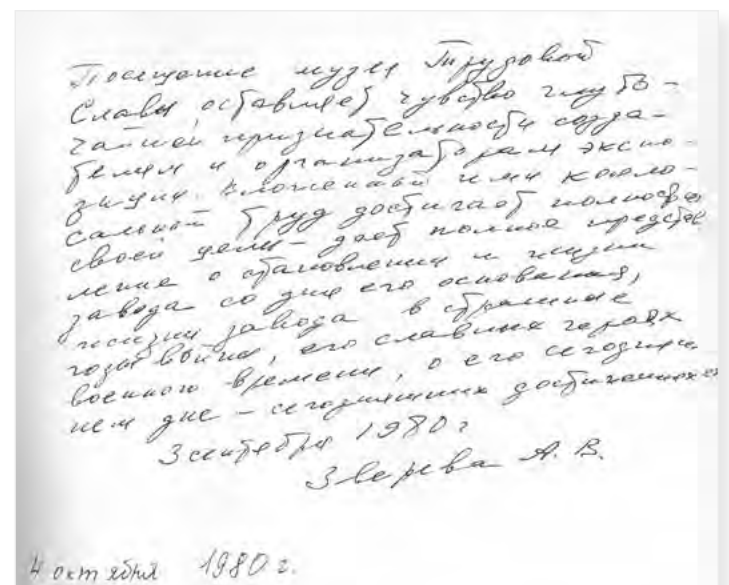 Посещение музея Трудовой
Славы оставляет чувство глубо-
чайшей признательности созда-
телям и организаторам экспо-
зиции. Вложенный ими колос-
сальный труд достигает полностью
своей цели – дает полное представ
ление о становлении и жизни
завода со дня его основания,
жизни завода в страшные
годы войны, его славных героях
военного времени, о его сегодняш
нем дне – сегодняшних достижениях
3 сентября 1980 г
Зверева А. В.
4 октября 1980 г.